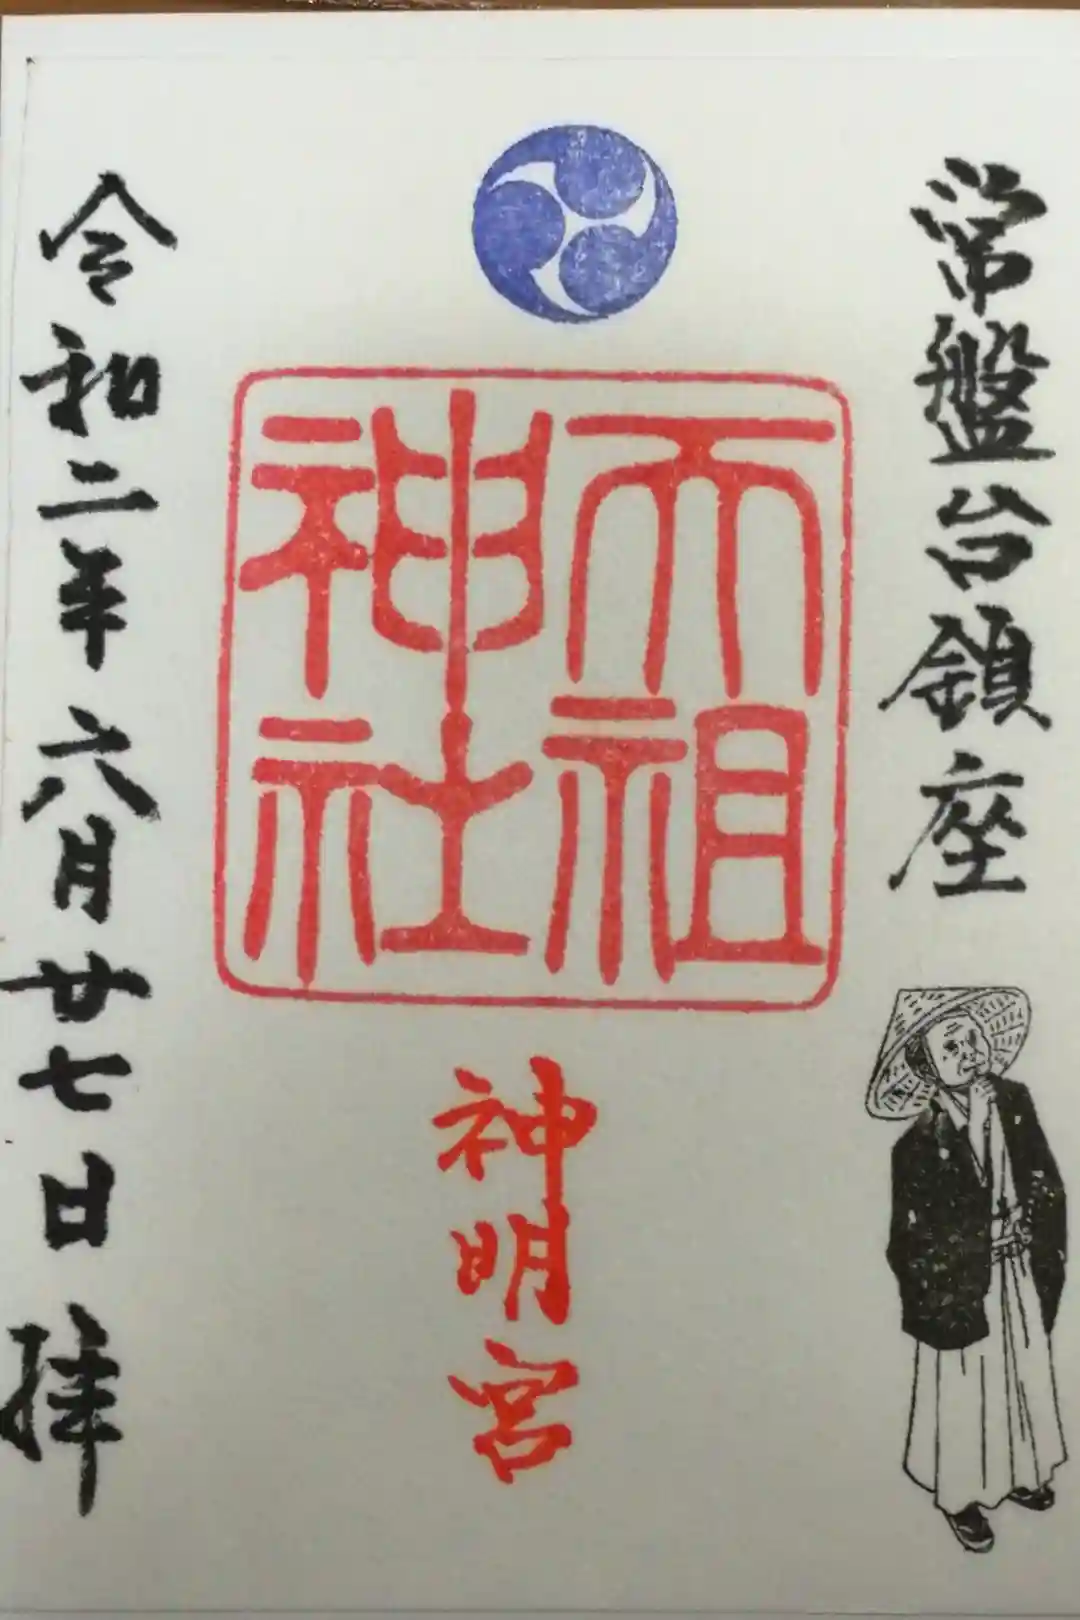 常盤台鎮座
天祖
神社
神明宮
令和二年六月廿七日 拝